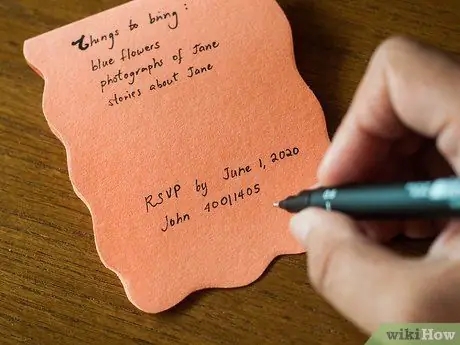 Things to bring:
blue flowers
photographs of Jane
stories about Jane
RSVP by June 1, 2020
John 40011405
wikiHow